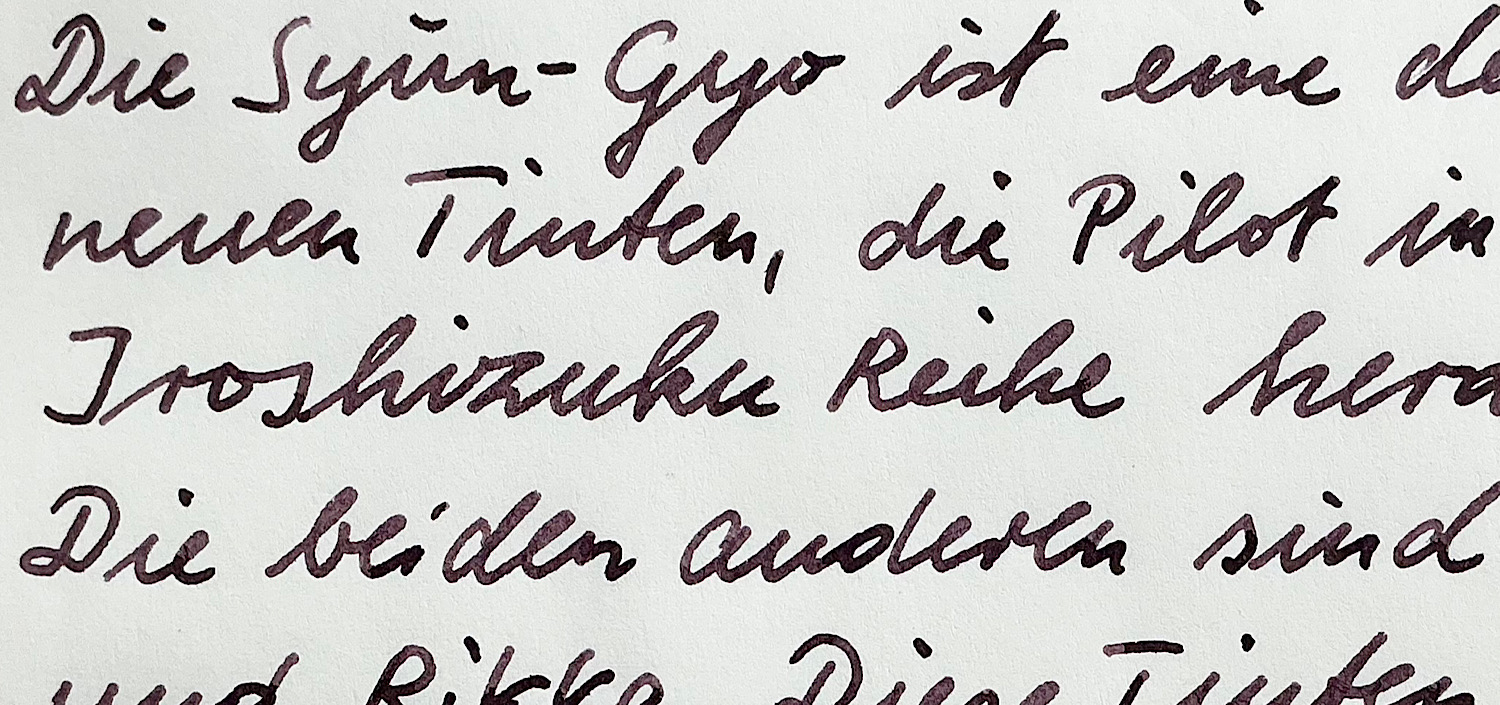 Die Syun-Gyo ist eine de
neuen Tinten, die Pilot in
Iroshizuku Reihe hera
Die beiden anderen sind
und Rikka. Diese Tinten